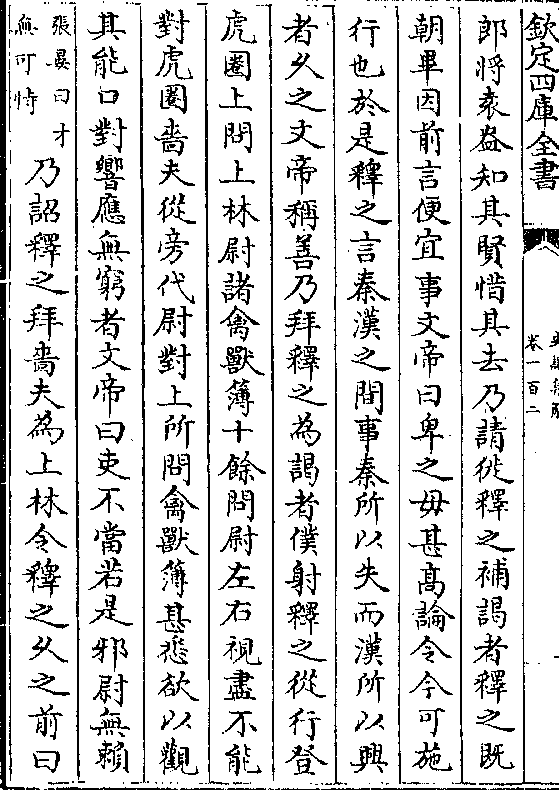 欽定四庫全書
卷一百二
郎將袁盎知其賢惜其去乃請徙釋之補謁者釋之既
朝畢因前言便宜事文帝曰卑之毋甚髙論令今可施
行也於是釋之言秦漢之間事秦所以失而漢所以興
者乆之文帝稱善乃拜釋之為謁者僕射釋之從行登
虎圈上問上林尉諸禽獸簿十餘問尉左右視盡不能
對虎圈嗇夫從旁代尉對上所問禽獸簿甚悉欲以觀
其能口對響應無窮者文帝曰吏不當若是邪尉無賴
張晏曰才
無可恃
乃詔釋之拜嗇夫為上林令釋之乆之前曰